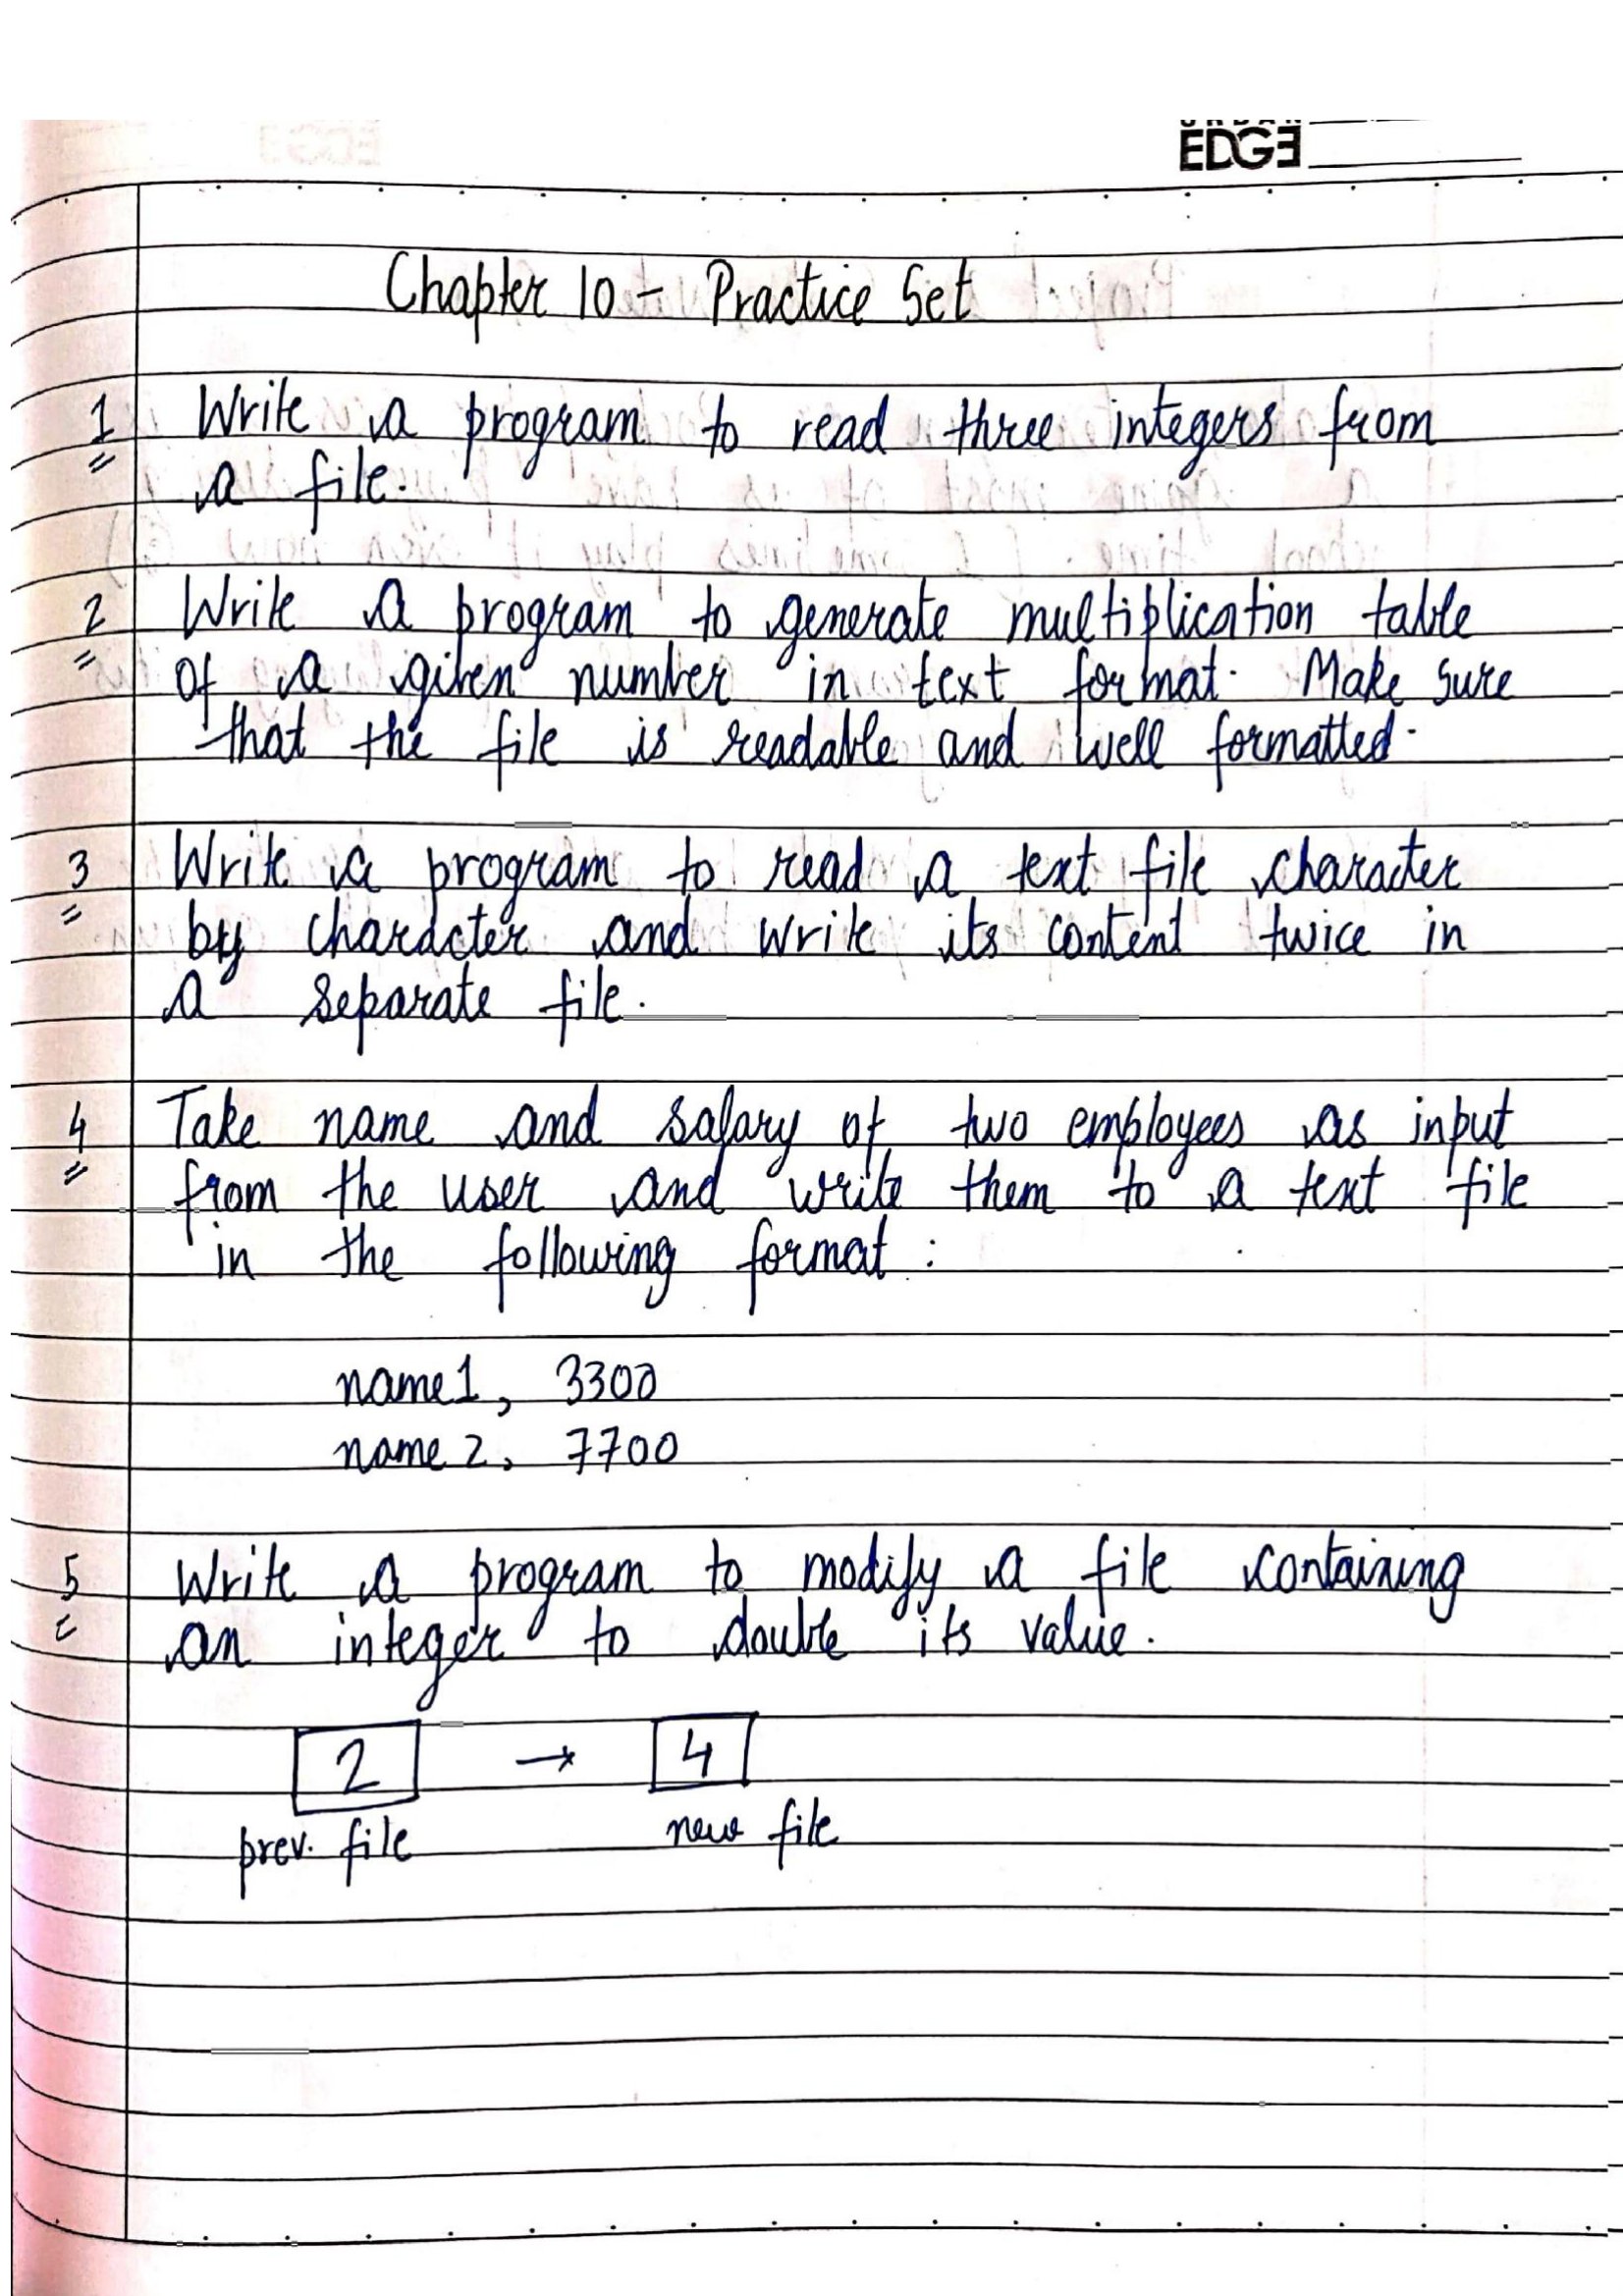 URBAN
EDGE
Chapter 10 - Practice Set
1 Write a program to read three integers from
a file.
2 Write a program to generate multiplication table
of a given number in text format. Make sure
that the file is readable and well formatted.
3 Write a program to read a text file character
by character and write its content twice in
a separate file.
4 Take name and salary of two employees as input
from the user and write them to a text file
in the following format :
name1, 3300
name2, 7700
5 Write a program to modify a file containing
an integer to double its value.
2 → 4
prev. file new file